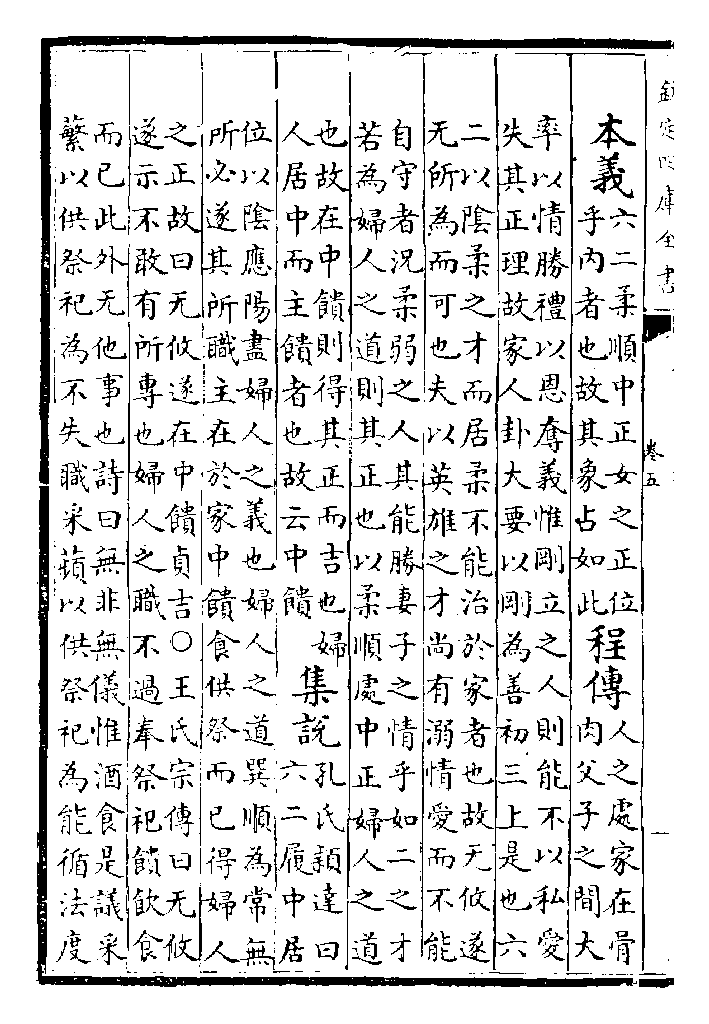 欽定四庫全書
卷五
本義
六二柔順中正女之正位
乎内者也故其象占如此
程傳
人之處家在骨
肉父子之間大
率以情勝禮以恩奪義惟剛立之人則能不以私愛
失其正理故家人卦大要以剛為善初三上是也六
二以陰柔之才而居柔不能治於家者也故无攸遂
无所為而可也夫以英雄之才尚有溺情愛而不能
自守者況柔弱之人其能勝妻子之情乎如二之才
若為婦人之道則其正也以柔順處中正婦人之道
也故在中饋則得其正而吉也婦
人居中而主饋者也故云中饋
集說
孔氏穎達曰
六二履中居
位以陰應陽盡婦人之義也婦人之道巽順為常無
所必遂其所職主在於家中饋食供祭而已得婦人
之正故曰无攸遂在中饋貞吉○王氏宗傳曰无攸
遂示不敢有所專也婦人之職不過奉祭祀饋飲食
而已此外无他事也詩曰無非無儀惟酒食是議采
蘩以供祭祀為不失職采蘋以供祭祀為能循法度